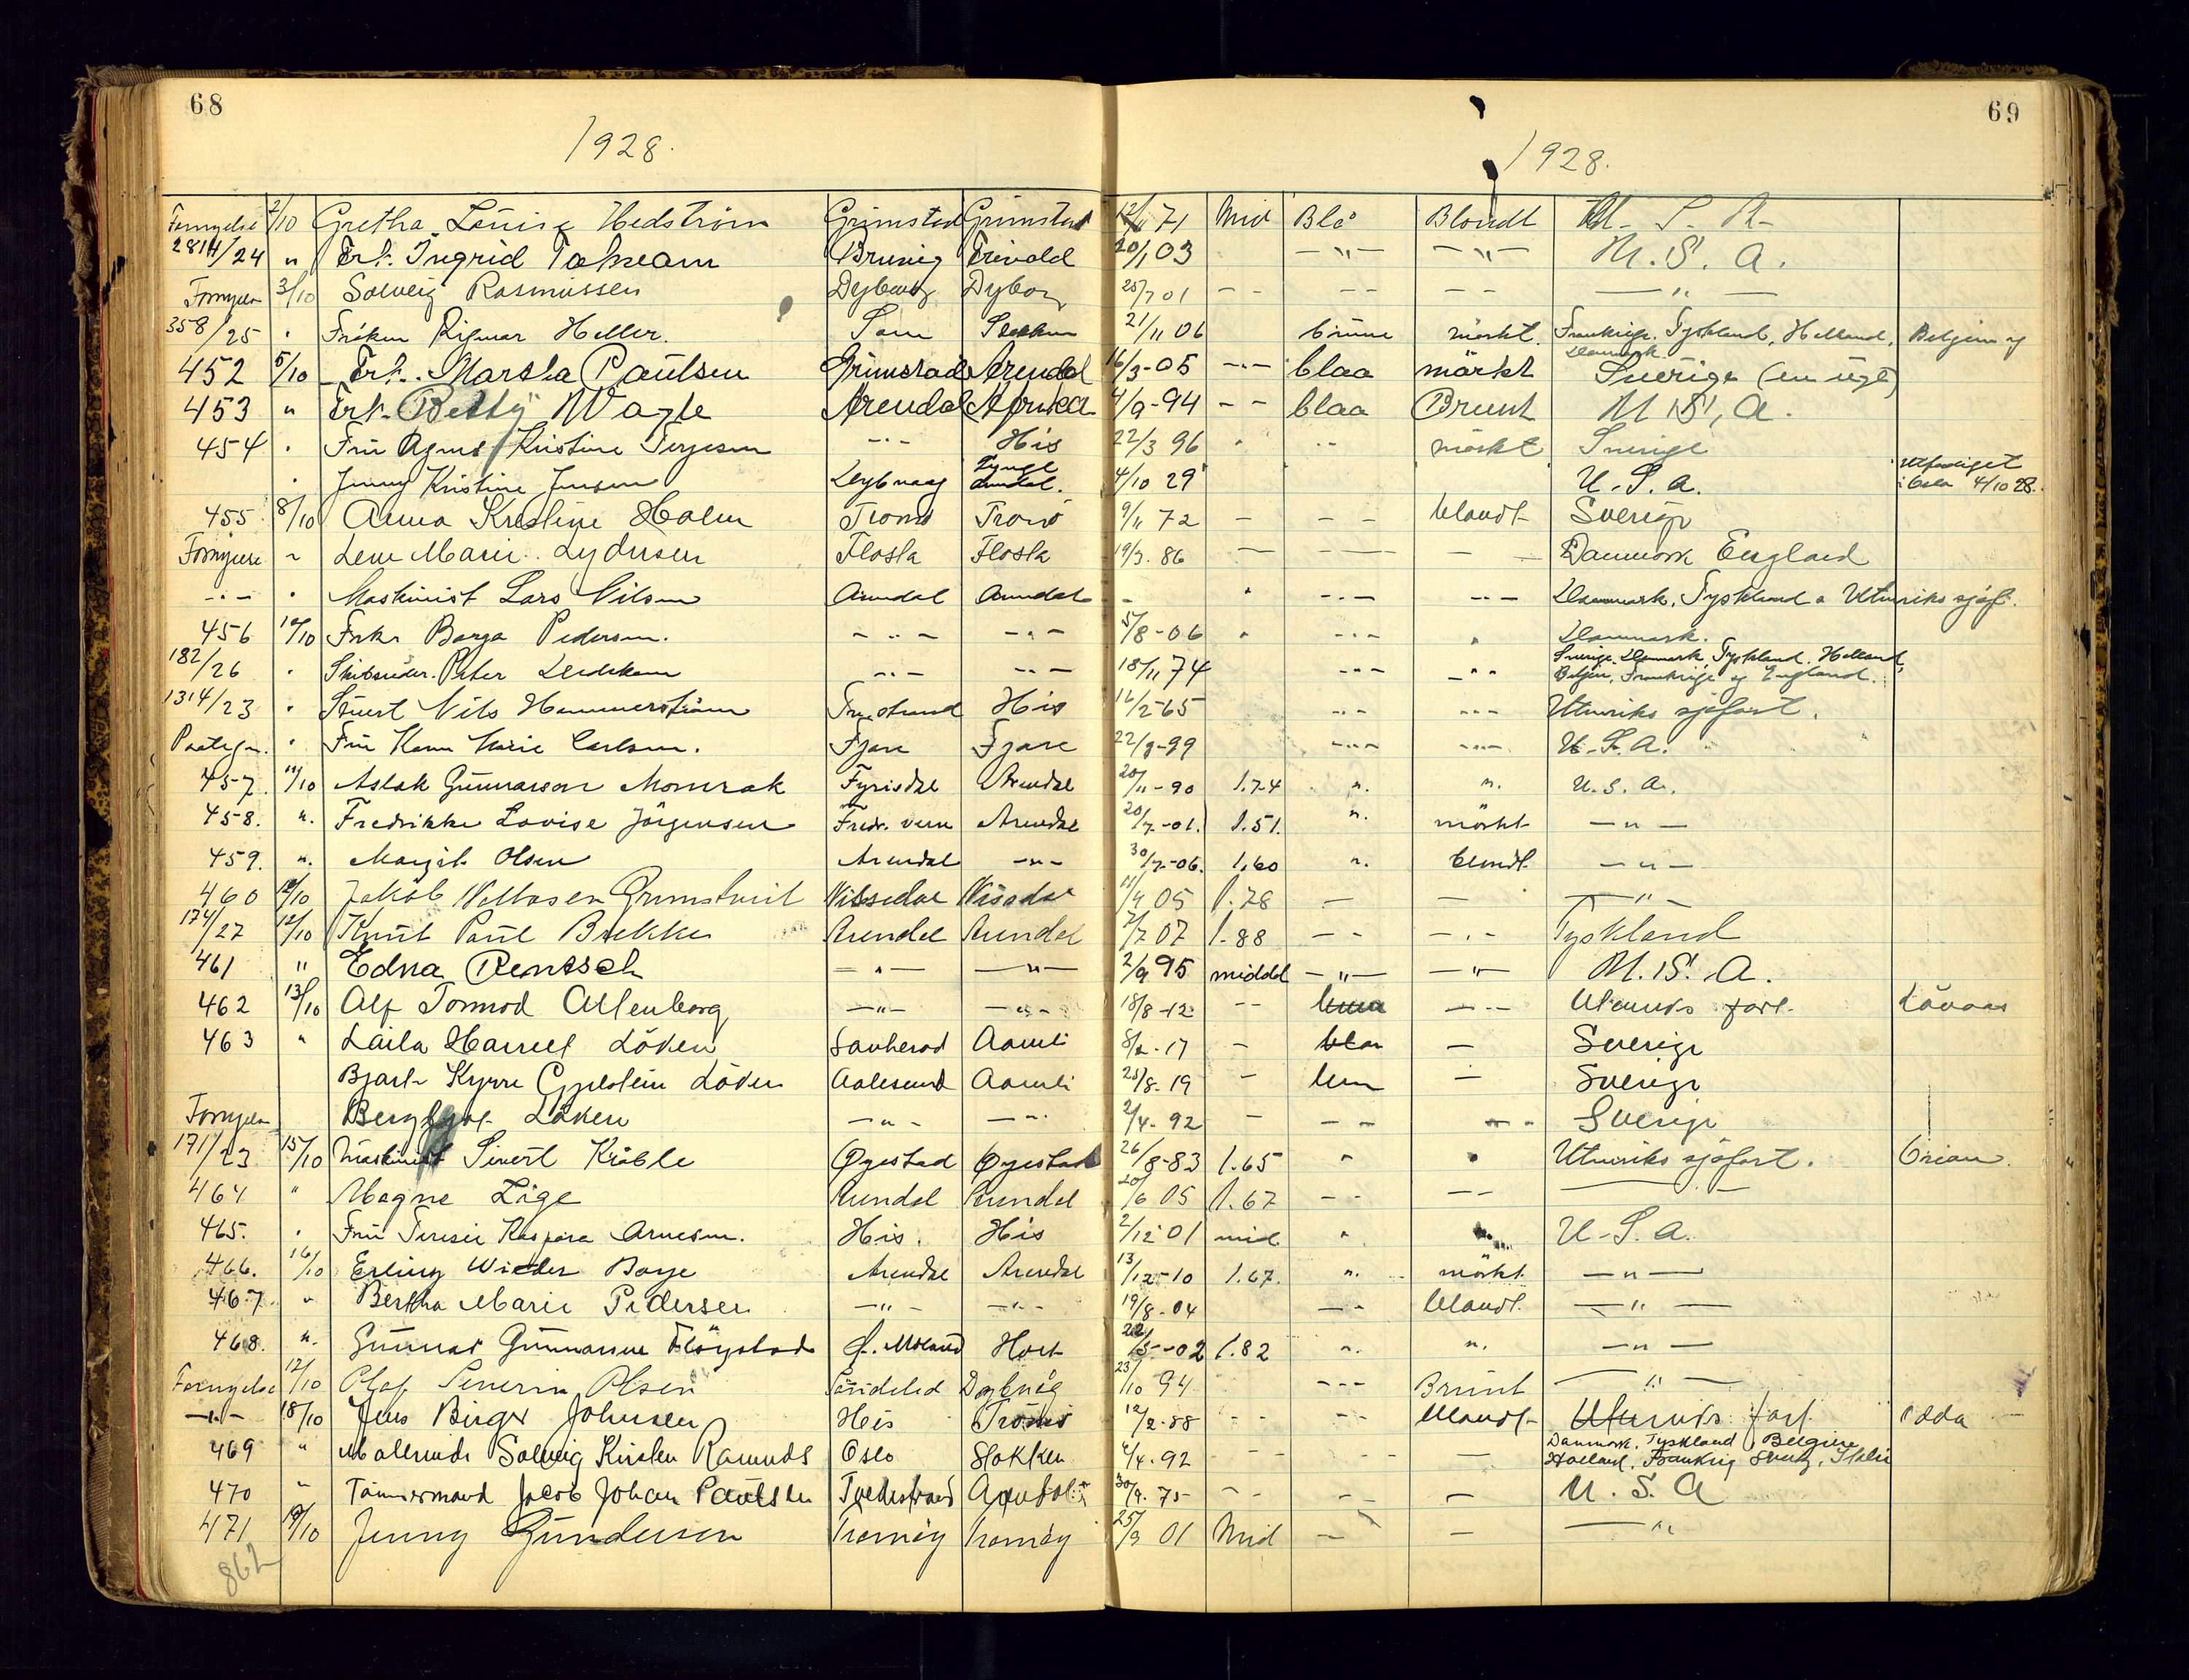 68
1928.
69
1928.
Fornyelse 2/10 Gretha Louise Hedström Grimstad Grimstad 12/11 71 Mid Blå Blondt U. S. A.
281/24 " Frk. Ingrid Grivold 20/1 03 — " — — " — U. S. A.
Fornyelse 3/10 Solveig Rasmussen Dybvaag Dybvaag 25/7 01 - - - - - - — " —
358/25 " Frøken Rigmor Heller. 21/11 06 brune mörkt. Frankrige, Tyskland, Holland, Belgien og
Danmark.
452 5/10 Frk. Martha Paulsen Grimstad Arendal 16/3-05 - " - blaa mörkt Sverige
453 " Frk. Betty Wagle Arendal 4/9-94 - - blaa Brunt U. S. A.
454 " Fru Agnes Kristine Terjesen - " - His 22/3 96 " - - mörkt Sverige
" Jenny Kristine Jensen Dybvaag 4/10 29 U. S. A. Utferdiget
i Oslo 4/10 28.
455 8/10 Anna Kristine Holm Tromö Tromö 9/11 72 - - - blondt Sverige
Fornyelse " Lene Marie Lydersen Flosta Flosta 19/3. 86 — — — Danmark England
- " - " Maskinist Lars Nilsen Arendal Arendal - " - " - - " - Danmark, Tyskland & Utenriks sjøf.
456 10/10 Frkn Borga Pedersen. - " - - " - 5/8-06 " - " - " Danmark.
182/26 " Peter - " - - " - 18/11 74 - " - - " " Sverige, Danmark, Tyskland, Holland,
Belgien, Frankrige og England.
1314/23 " Stuert Nils Hammerström His 16/2-65 - " - - " - Utenriks sjøfart.
Paategn. " Fru Karen Marie Carlsen. Fjære Fjære 22/8-99 - " - - " - U. S. A.
457. 11/10 Aslak Gunnarson Momrak Fyrisdal Arendal 20/11-90 1.74 ". ". U. S. A.
458. ". Fredrikke Lovise Jörgensen Fredr. vern Arendal 20/7-01. 1.51. ". mörkt — " —
459. ". Margit Olsen Arendal - " - 30/7-06. 1,60 ". blondt. — " —
460 12/10 Jakob Grimstveit Nissedal Nissedal 11/4 05 1.78 — — — " —
174/27 12/10 Knut Paul Brekke Arendal Arendal 7/7 07 1.88 - - - " - Tyskland
461 " Edna Rentsch — " — — " — 2/9 95 middel — " — — " — U. S. A.
462 13/10 Alf Tormod Altenborg — " — — " — 18/8-12 - - — - - Utenriks fart.
463 " Laila Harriet Löken Sauherad Aamli 8/2-17 - blaa — Sverige
Bjart Kyrre Löken Aalesund Aamli 25/8-19 - — Sverige
Fornyelse Bergljot Löken - " - — " - 2/4-92 - - - - - Sverige
171/23 15/10 Maskinist Sivert Kråble Øyestad Øyestad 26/8-83 1.65 " " Utenriks sjøfart.
464 " Magne Lige Arendal Arendal 20/6 05 1.67 - - - - — " —
465. " Fru Teresie Kaspara Arnesen. His. His 2/12 01 mid. " U. S. A.
466. 16/10 Erling Borge Arendal Arendal 13/12-10 1.67. ". mörkt — " —
467 " Bertha Marie Pedersen — " — — " — 19/8-04 — " blondt. — " —
468. ". Gunnar Gunnarson Flöystad Ø. Moland Holt 22/5-02 1.82 ". ". — " —
Fornyelse 17/10 Olaf Severin Olsen Söndeled Dybvåg 23/10 94 - - - Brunt — " —
- " - 18/10 Jens Birger Johnsen His Tromö 12/2-88 - - - - blondt Utenriks fart Odda
469 " Malerinde Solveig Kirsten Oslo Stokken 4/4.92 - - - - — Danmark, Tyskland, Belgien,
Holland, Frankrig, Italien
470 " Tömmermand Jacob Johan Paulsen Tvedestrand 30/9.75 - - - - — U. S. A
471 19/10 Jenny Gundersen Tromöy Tromöy 25/9 01 Mid — — — "
862